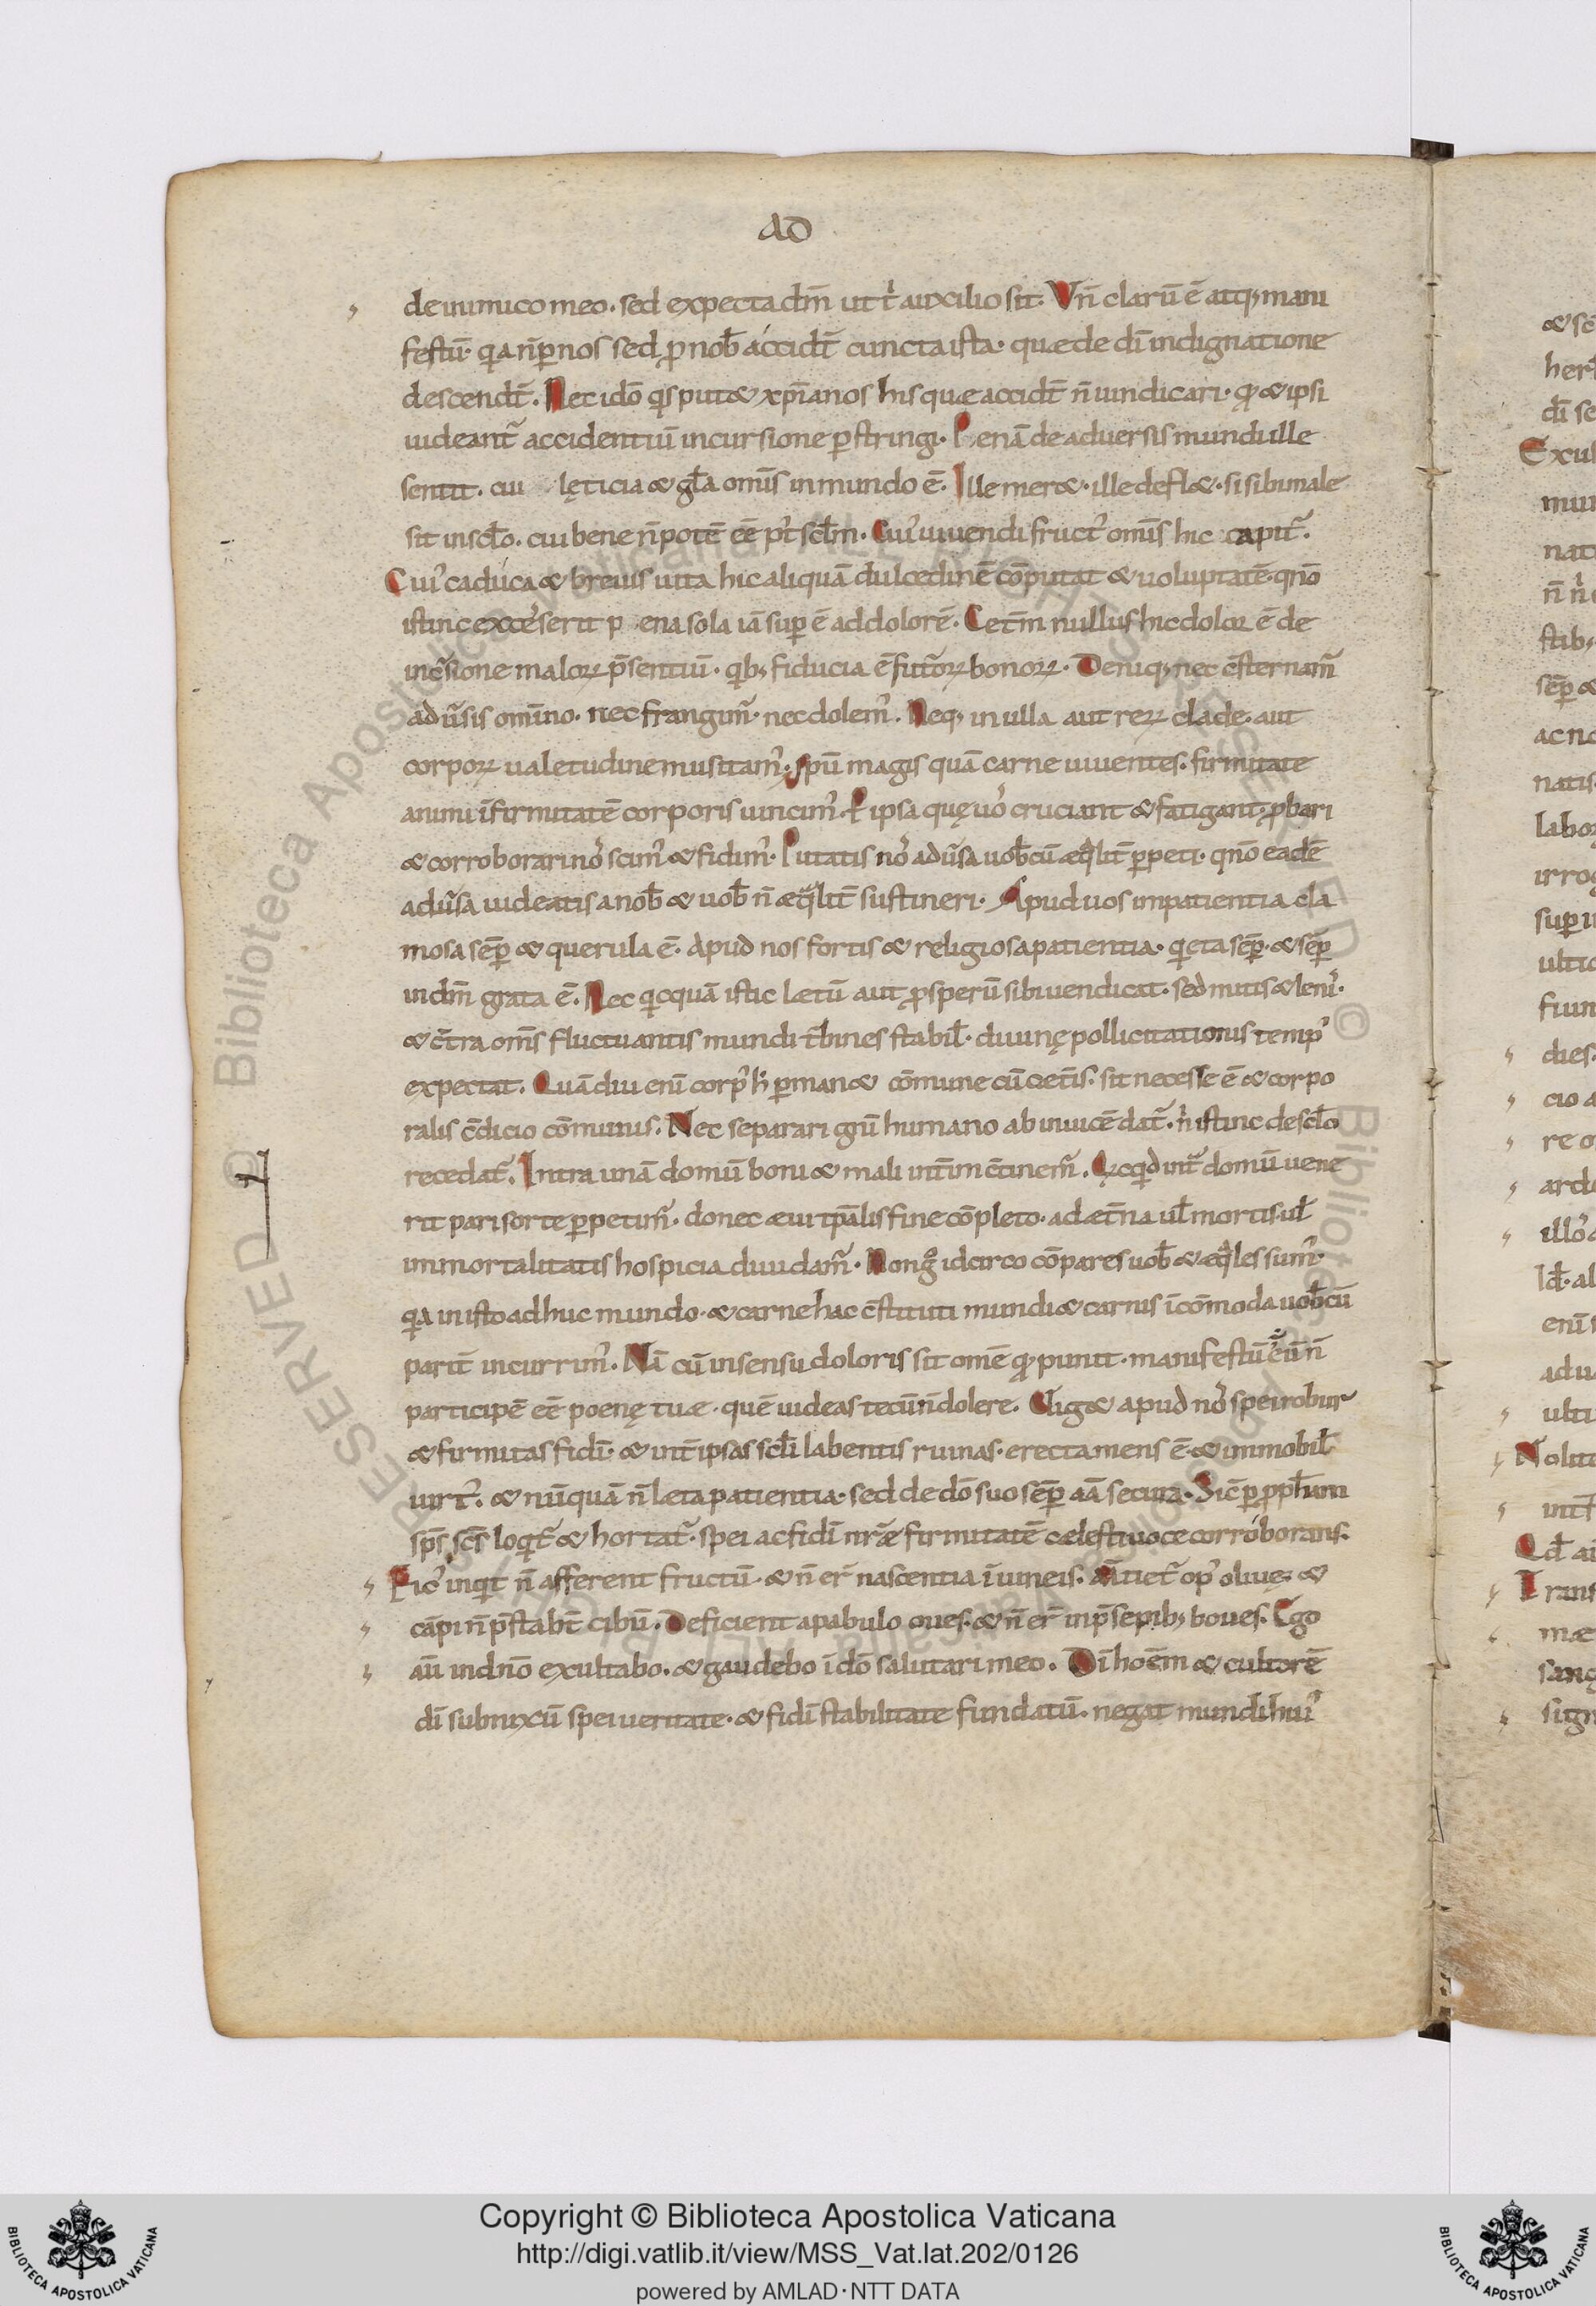 AD
de inimico meo. sed expecta dm̄ ut t᷒ auxilio sit. Vn̄ clarū ē atq; mani
festū. q̨a n̄ ꝑ nos sed ꝓ nob̄ accidt̄ cuncta ista. quæ de dī indignatione
descendt̄. Nec idō q̨s put& xp̄ianos his quæ accidt̄ n̄ uindicari. qđ & ipsi
uideant᷒ accidentiū incursione ꝑstringi. Penā de aduersis mundi ille
sentit. cui lęticia & gl̄a om̄is in mundo ē. Ille mer&. ille defl&. si sibi male
sit in sc̄lo. cui bene n̄ potē eē p᷒t sc̄lm. Cui᷒ uiuendi fruct᷒ om̄is hic capit᷒.
Cui᷒ caduca & breuis uita hic aliquā dulcedinē cōputat & uoluptatē. qn̄o
istinc excesserit p ena sola iā suꝑ ē ad dolorē. Cet̄m nullus hic dolor ē de
inc᷒sione maloꝝ p̄sentiū. q̨b; fiducia ē fut᷒oꝝ bonoꝝ. Deniq; nec c̄sternam᷒
adūsis omīno. nec frangim᷒. nec dolem᷒. Neq; in ulla aut reꝝ clade. aut
corpoꝝ ualetudine musitam᷒. Spū magis quā carne uiuentes. firmitate
animi īfirmitatē corporis uincim᷒. P ipsa quę uo᷒ cruciant & fatigant. ꝓbari
& corroborari no᷒ scim᷒ & fidim᷒. Putatis no᷒ adūsa uob̄cū æq̨lit̄ ꝑpeti. qn̄o eadē
adūsa uideatis a nob̄ & uob̄ n̄ æq̨lit̄ sustineri. Apud uos impatientia cla
mosa sēꝑ & querula ē. Apud nos fortis & religiosa patientia. q̨eta sēꝑ. & sēꝑ
in dm̄ grata ē. Nec q̨cquā istic lætū aut ꝓsperū sibi uendicat. sed mitis & leni᷒.
& c̄tra om̄s fluctuantis mundi t̄bines stabil̄. diuinę pollicitationis temp᷒
expectat. Quā diu enī corp᷒ h᷒ ꝑman& cōmune cū cet̄is. sit necesse ē & corpo
ralis c̄dicio cōmunis. Nec separari gn̄i humano ab inuicē dat᷒. n᷒ istinc de sc̄lo
recedat᷒. Intra unā domū boni & mali int̄im c̄tinem᷒. Qcq̨d int᷒ domū uene
rit pari sorte ꝑpetim᷒. donec æui tp̄alis fine cōpleto. ad æt̄na ul̄ mortis ul̄
immortalitatis hospicia diuidam᷒. Non g᷒ idcirco cōpares uob̄ & æq̨les sum᷒.
q̨a in isto adhuc mundo. & carne hac c̄stituti mundi & carnis īcōmoda uob̄cū
parit̄ incurrim᷒. Nā cū in sensu doloris sit omē qđ punit. manifestū ē eū n̄
participē eē poenę tuæ. quē uideas tecū n̄ dolere. Uig& apud no᷒ spei robur
& firmitas fidī. & int̄ ipsas sc̄li labentis ruinas. erecta mens ē. & immobil̄
uirt᷒. & nūquā n̄ læta patientia. sed de dō suo sēꝑ aīa secura. Sic̄ ꝑ ꝓph̄am
sp̄s sc̄s loq̨t᷒ & hortat᷒. spei ac fidī nr̄æ firmitatē cælesti uoce corroborans.
Fic᷒ inq̨t n̄ afferent fructū. & n̄ er̄ nascentia ī uineis. Mtiet᷒ op᷒ oliuę. &
cāpi n̄ p̄stabt̄ cibū. Deficient a pabulo oues. & n̄ er̄ in p̄sepib; boues. Ego
aū in dn̄o exultabo. & gaudebo ī dō salutari meo. Dī hoēm & cultorē
dī subnixū spei ueritate. & fidī stabilitate fundatū. negat mundi hui᷒
Copyright © Biblioteca Apostolica Vaticana
http://digi.vatlib.it/view/MSS_Vat.lat.202/0126
powered by AMLAD·NTT DATA